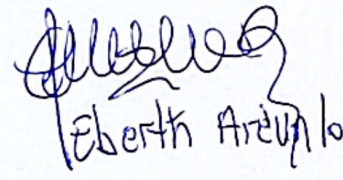 Eberth Arevalo